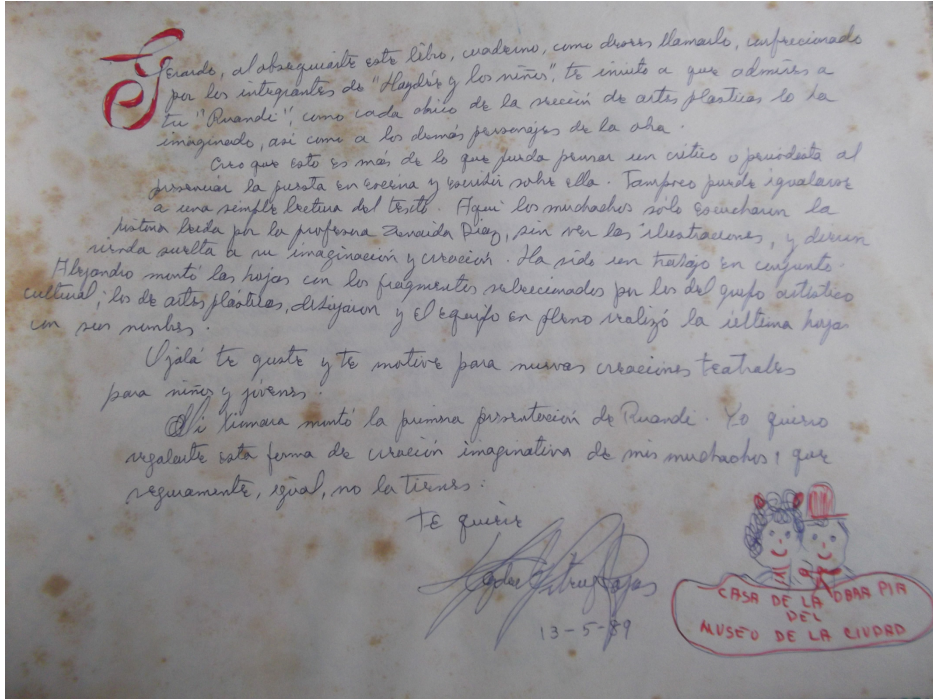 Gerardo, al obsequiarte este libro, cuaderno, como desees llamarlo, confeccionado
por los integrantes de "Haydée y los niños", te invito a que admires a
tu "Ruandi", como cada chico de la sección de artes plasticas lo ha
imaginado, así como a los demás personajes de la obra.
Creo que esto es más de lo que pueda pensar un crítico o periodista al
presenciar la puesta en escena y escribir sobre ella. Tampoco puede igualarse
a una simple lectura del texto. Aquí los muchachos sólo escucharon la
historia leída por la profesora Zenaida Díaz, sin ver las ilustraciones, y dieron
rienda suelta a su imaginación y creación. Ha sido un trabajo en conjunto.
Alejandro montó las hojas con los fragmentos seleccionados por los del grupo artístico
cultural; los de artes plasticas, dibujaron y el equipo en pleno realizó la última hoja
con sus nombres.
Ojalá te guste y te motive para nuevas creaciones teatrales
para niños y jóvenes.
Si Xiomara montó la primera presentación de Ruandi. Yo quiero
regalarte esta forma de creación imaginativa de mis muchachos, que
seguramente, igual, no la tienes.
TE quiere
13-5-89
CASA DE LA OBRA PIA
DEL
MUSEO DE LA CIUDAD